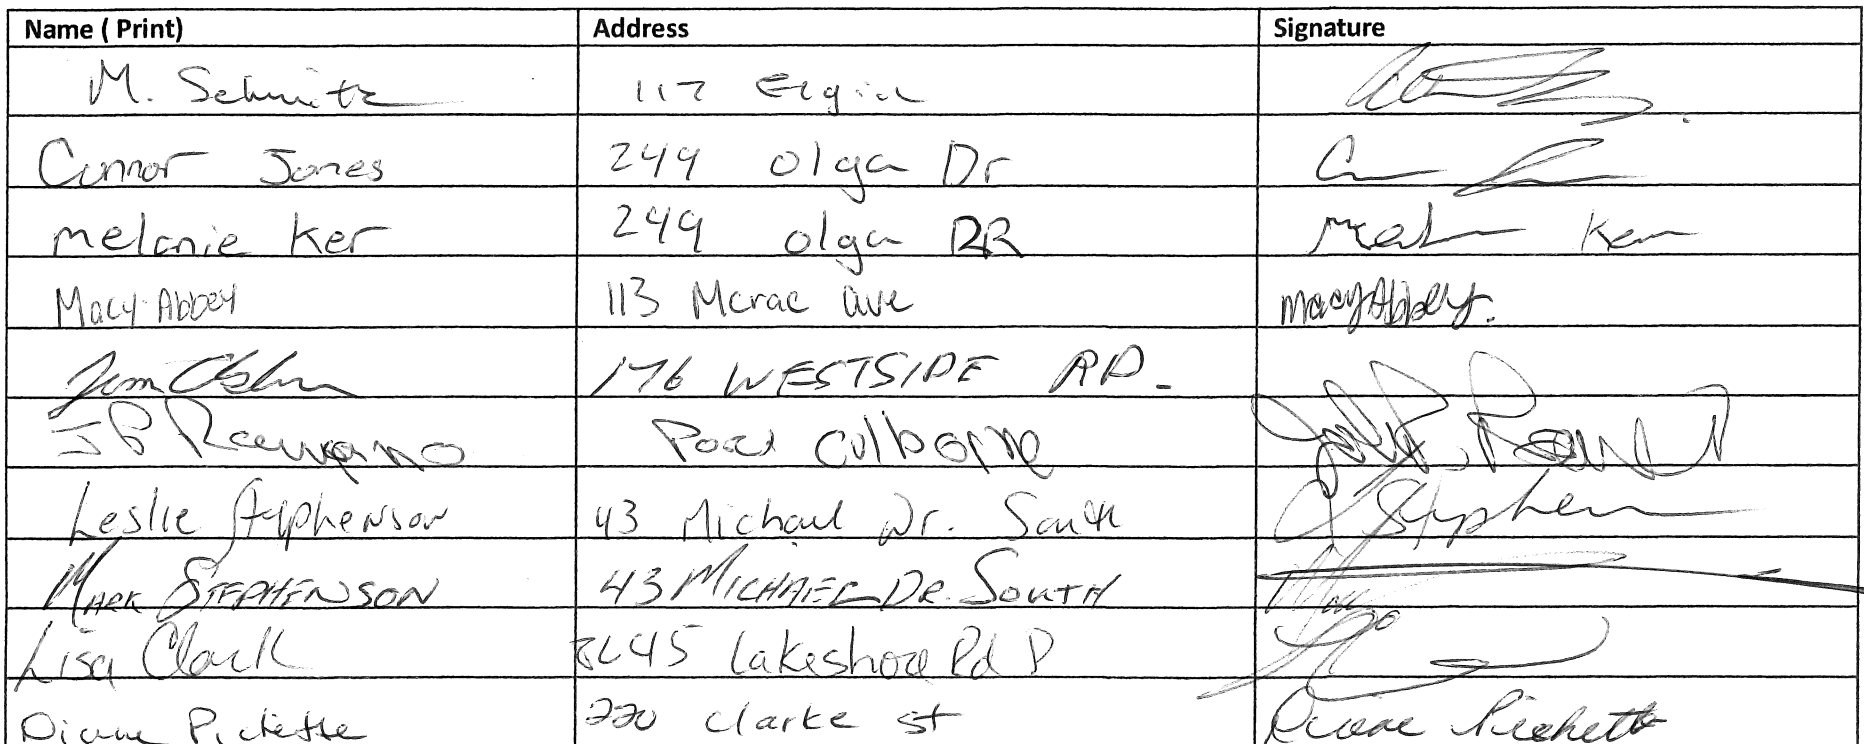 Name ( Print) Address Signature
M. Schmitz 117 Elgin
Connor Jones 249 Olga Dr
melanie Ker 249 olga DR Ker
Macy Abbey 113 Mcrae ave Macy Abbey.
176 WESTSIDE RD.
JP Port Colborne
Leslie Stephenson 43 Michael Dr. South Stephen
MARK STEPHENSON 43 MICHAEL DR. SOUTH
Lisa Clark Lakeshore Rd
Diane Pickette 220 Clarke st Diane Pickett